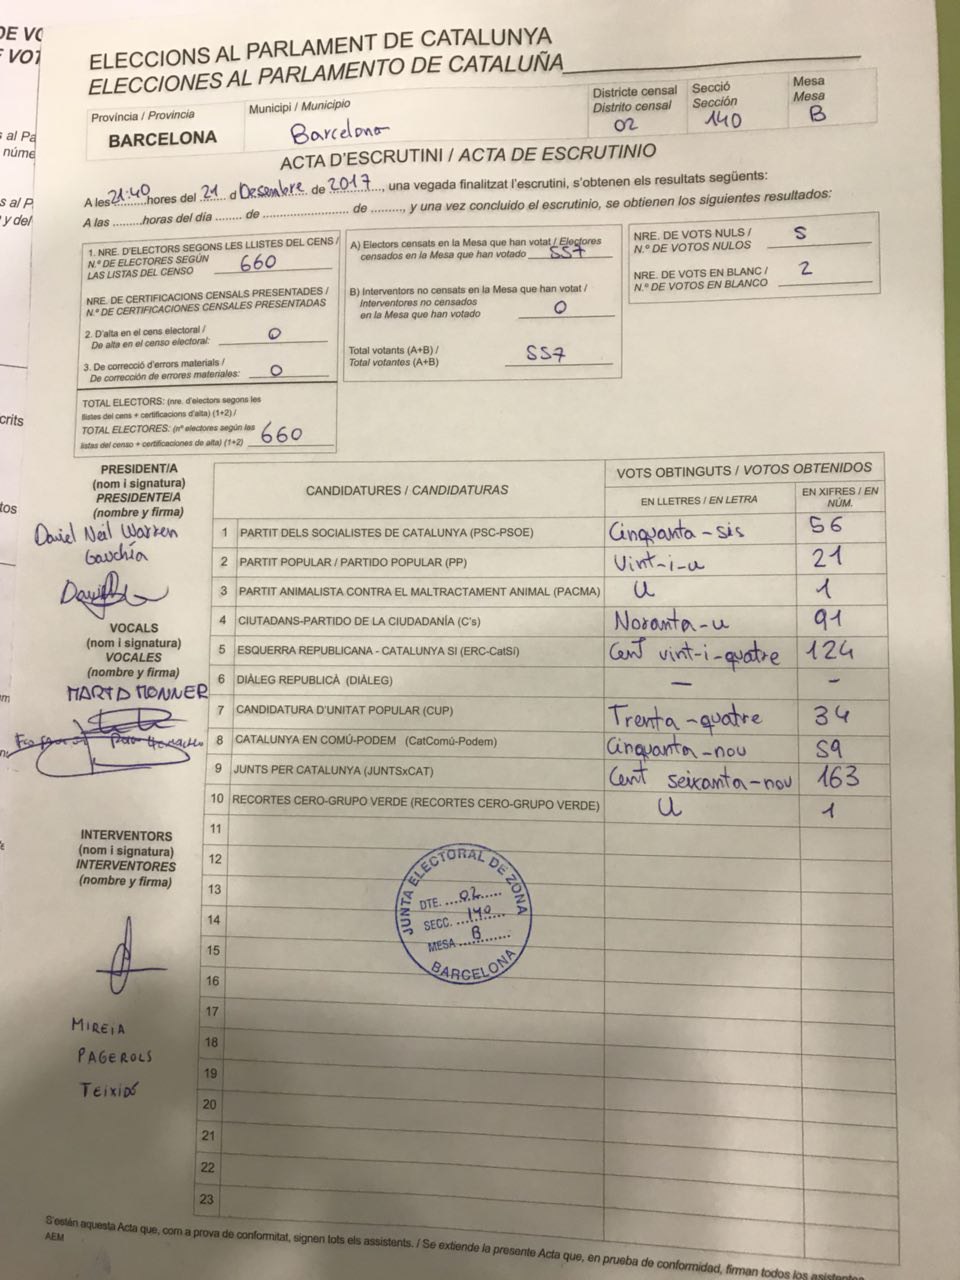 DE VO
E VOT
s al Pa
núme
s al P
y del
crits
tos
ELECCIONS AL PARLAMENT DE CATALUNYA
ELECCIONES AL PARLAMENTO DE CATALUÑA
Província / Provincia
BARCELONA
Municipi / Municipio
Barcelona
Districte censal
Distrito censal
02
Secció
Sección
140
Mesa
Mesa
B
ACTA D'ESCRUTINI / ACTA DE ESCRUTINIO
A les 21:40 hores del 21 d Desembre de 2017, una vegada finalitzat l'escrutini, s'obtenen els resultats següents:
A las ......... horas del día ........ de ........................ de ........., y una vez concluido el escrutinio, se obtienen los siguientes resultados:
1. NRE. D'ELECTORS SEGONS LES LLISTES DEL CENS /
N.º DE ELECTORES SEGÚN
LAS LISTAS DEL CENSO 660
NRE. DE CERTIFICACIONS CENSALS PRESENTADES /
N.º DE CERTIFICACIONES CENSALES PRESENTADAS
2. D'alta en el cens electoral /
De alta en el censo electoral: 0
3. De correcció d'errors materials /
De corrección de errores materiales: 0
TOTAL ELECTORS: (nre. d'electors segons les
llistes del cens + certificacions d'alta) (1+2) /
TOTAL ELECTORES: (nº electores según las
listas del censo + certificaciones de alta) (1+2) 660
A) Electors censats en la Mesa que han votat / Electores
censados en la Mesa que han votado 557
B) Interventors no censats en la Mesa que han votat /
Interventores no censados
en la Mesa que han votado 0
Total votants (A+B) /
Total votantes (A+B) 557
NRE. DE VOTS NULS /
N.º DE VOTOS NULOS 5
NRE. DE VOTS EN BLANC /
N.º DE VOTOS EN BLANCO 2
PRESIDENT/A
(nom i signatura)
PRESIDENTE/A
(nombre y firma)
David Neil Warren
Gauchía
VOCALS
(nom i signatura)
VOCALES
(nombre y firma)
MARTA MONNER
INTERVENTORS
(nom i signatura)
INTERVENTORES
(nombre y firma)
MIREIA
PAGEROLS
TEIXIDÓ
CANDIDATURES / CANDIDATURAS
VOTS OBTINGUTS / VOTOS OBTENIDOS
EN LLETRES / EN LETRA
EN XIFRES / EN NÚM.
1 PARTIT DELS SOCIALISTES DE CATALUNYA (PSC-PSOE) Cinquanta-sis 56
2 PARTIT POPULAR / PARTIDO POPULAR (PP) Vint-i-u 21
3 PARTIT ANIMALISTA CONTRA EL MALTRACTAMENT ANIMAL (PACMA) U 1
4 CIUTADANS-PARTIDO DE LA CIUDADANÍA (C's) Noranta-u 91
5 ESQUERRA REPUBLICANA - CATALUNYA SI (ERC-CatSí) Cent vint-i-quatre 124
6 DIÀLEG REPUBLICÀ (DIÀLEG) — –
7 CANDIDATURA D'UNITAT POPULAR (CUP) Trenta-quatre 34
8 CATALUNYA EN COMÚ-PODEM (CatComú-Podem) Cinquanta-nou 59
9 JUNTS PER CATALUNYA (JUNTSxCAT) Cent seixanta-nou 163
10 RECORTES CERO-GRUPO VERDE (RECORTES CERO-GRUPO VERDE) U 1
11
12
13
14
15
16
17
18
19
20
21
22
23
JUNTA ELECTORAL DE ZONA
DTE. 02
SECC. 140
MESA B
BARCELONA
S'estén aquesta Acta que, com a prova de conformitat, signen tots els assistents. / Se extiende la presente Acta que, en prueba de conformidad, firman todos los asistentes
AEM